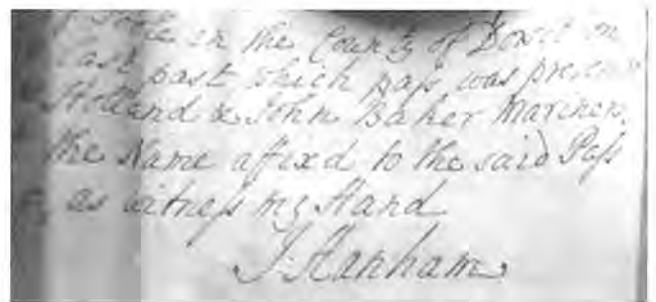 in the County of Dorset on
last past which paſs was
Holland & John Baker Mariner,
the Name affixd to the said Paſs
as witneſs my Hand
J: Hanham